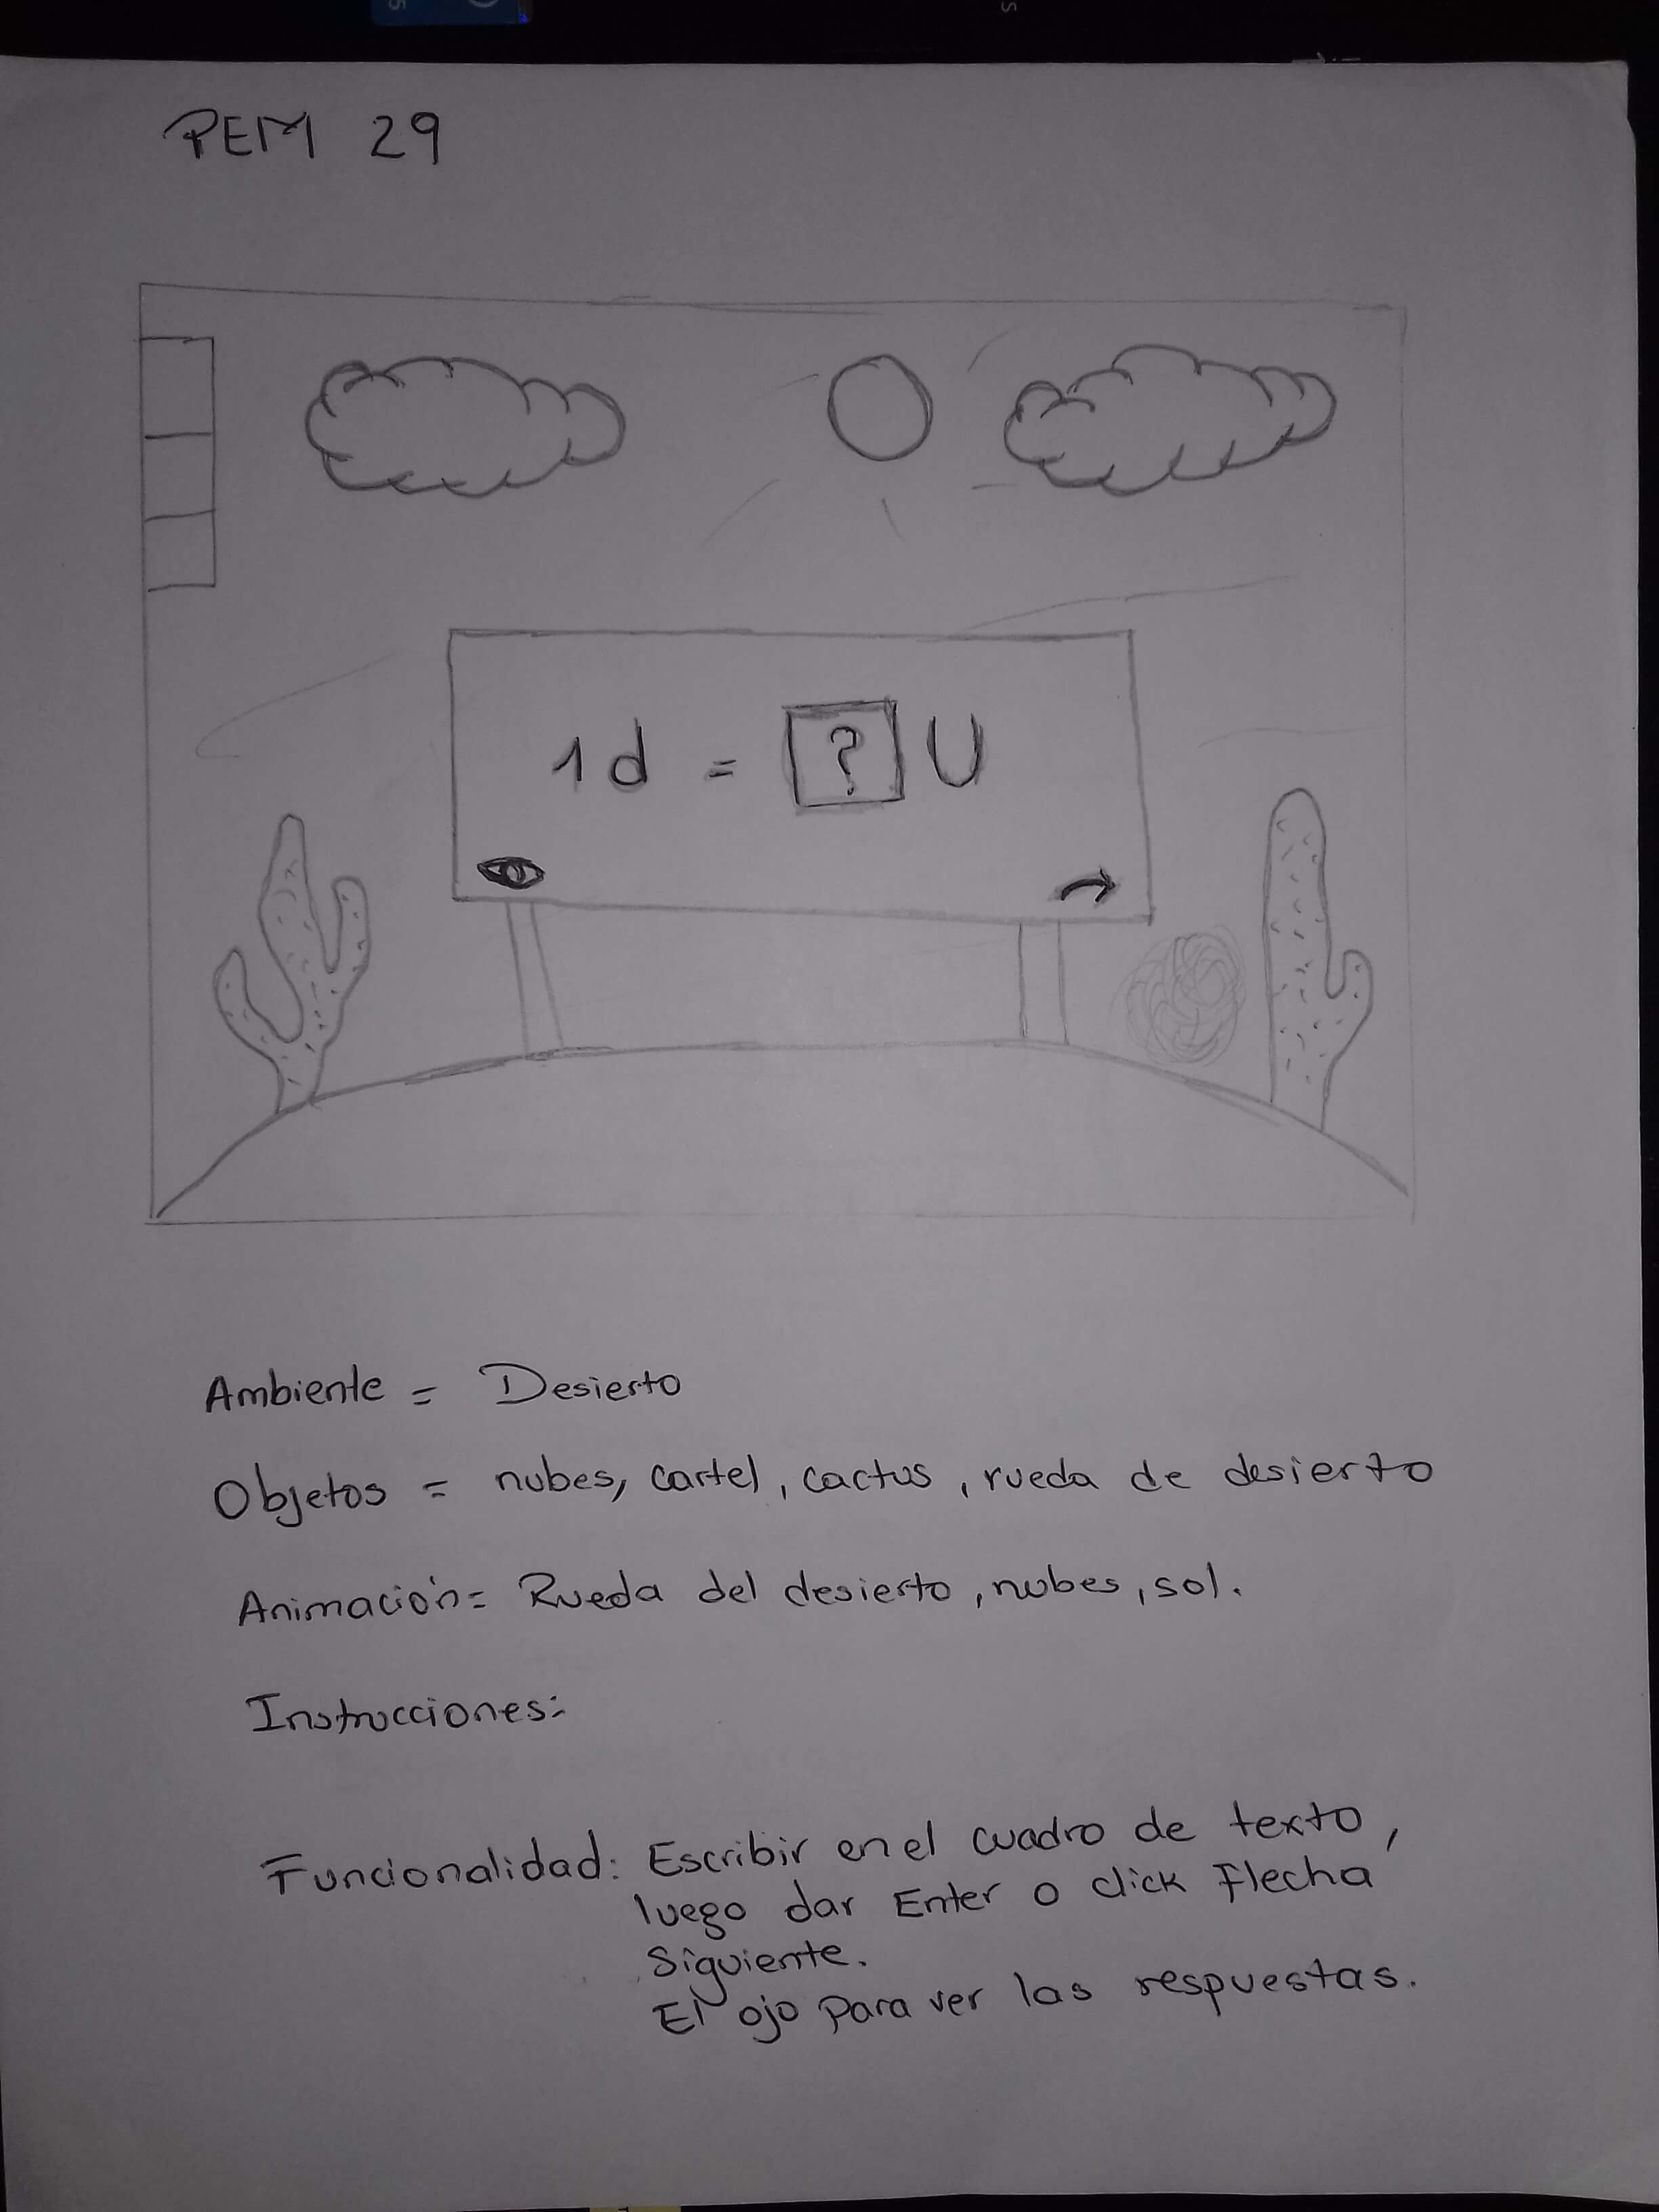 PEM 29
1 d = ? U
Ambiente = Desierto
Objetos = nubes, cartel, cactus, rueda de desierto
Animación = Rueda del desierto, nubes, sol.
Instrucciones:
Funcionalidad: Escribir en el cuadro de texto,
luego dar Enter o click Flecha
Siguiente.
El ojo para ver las respuestas.